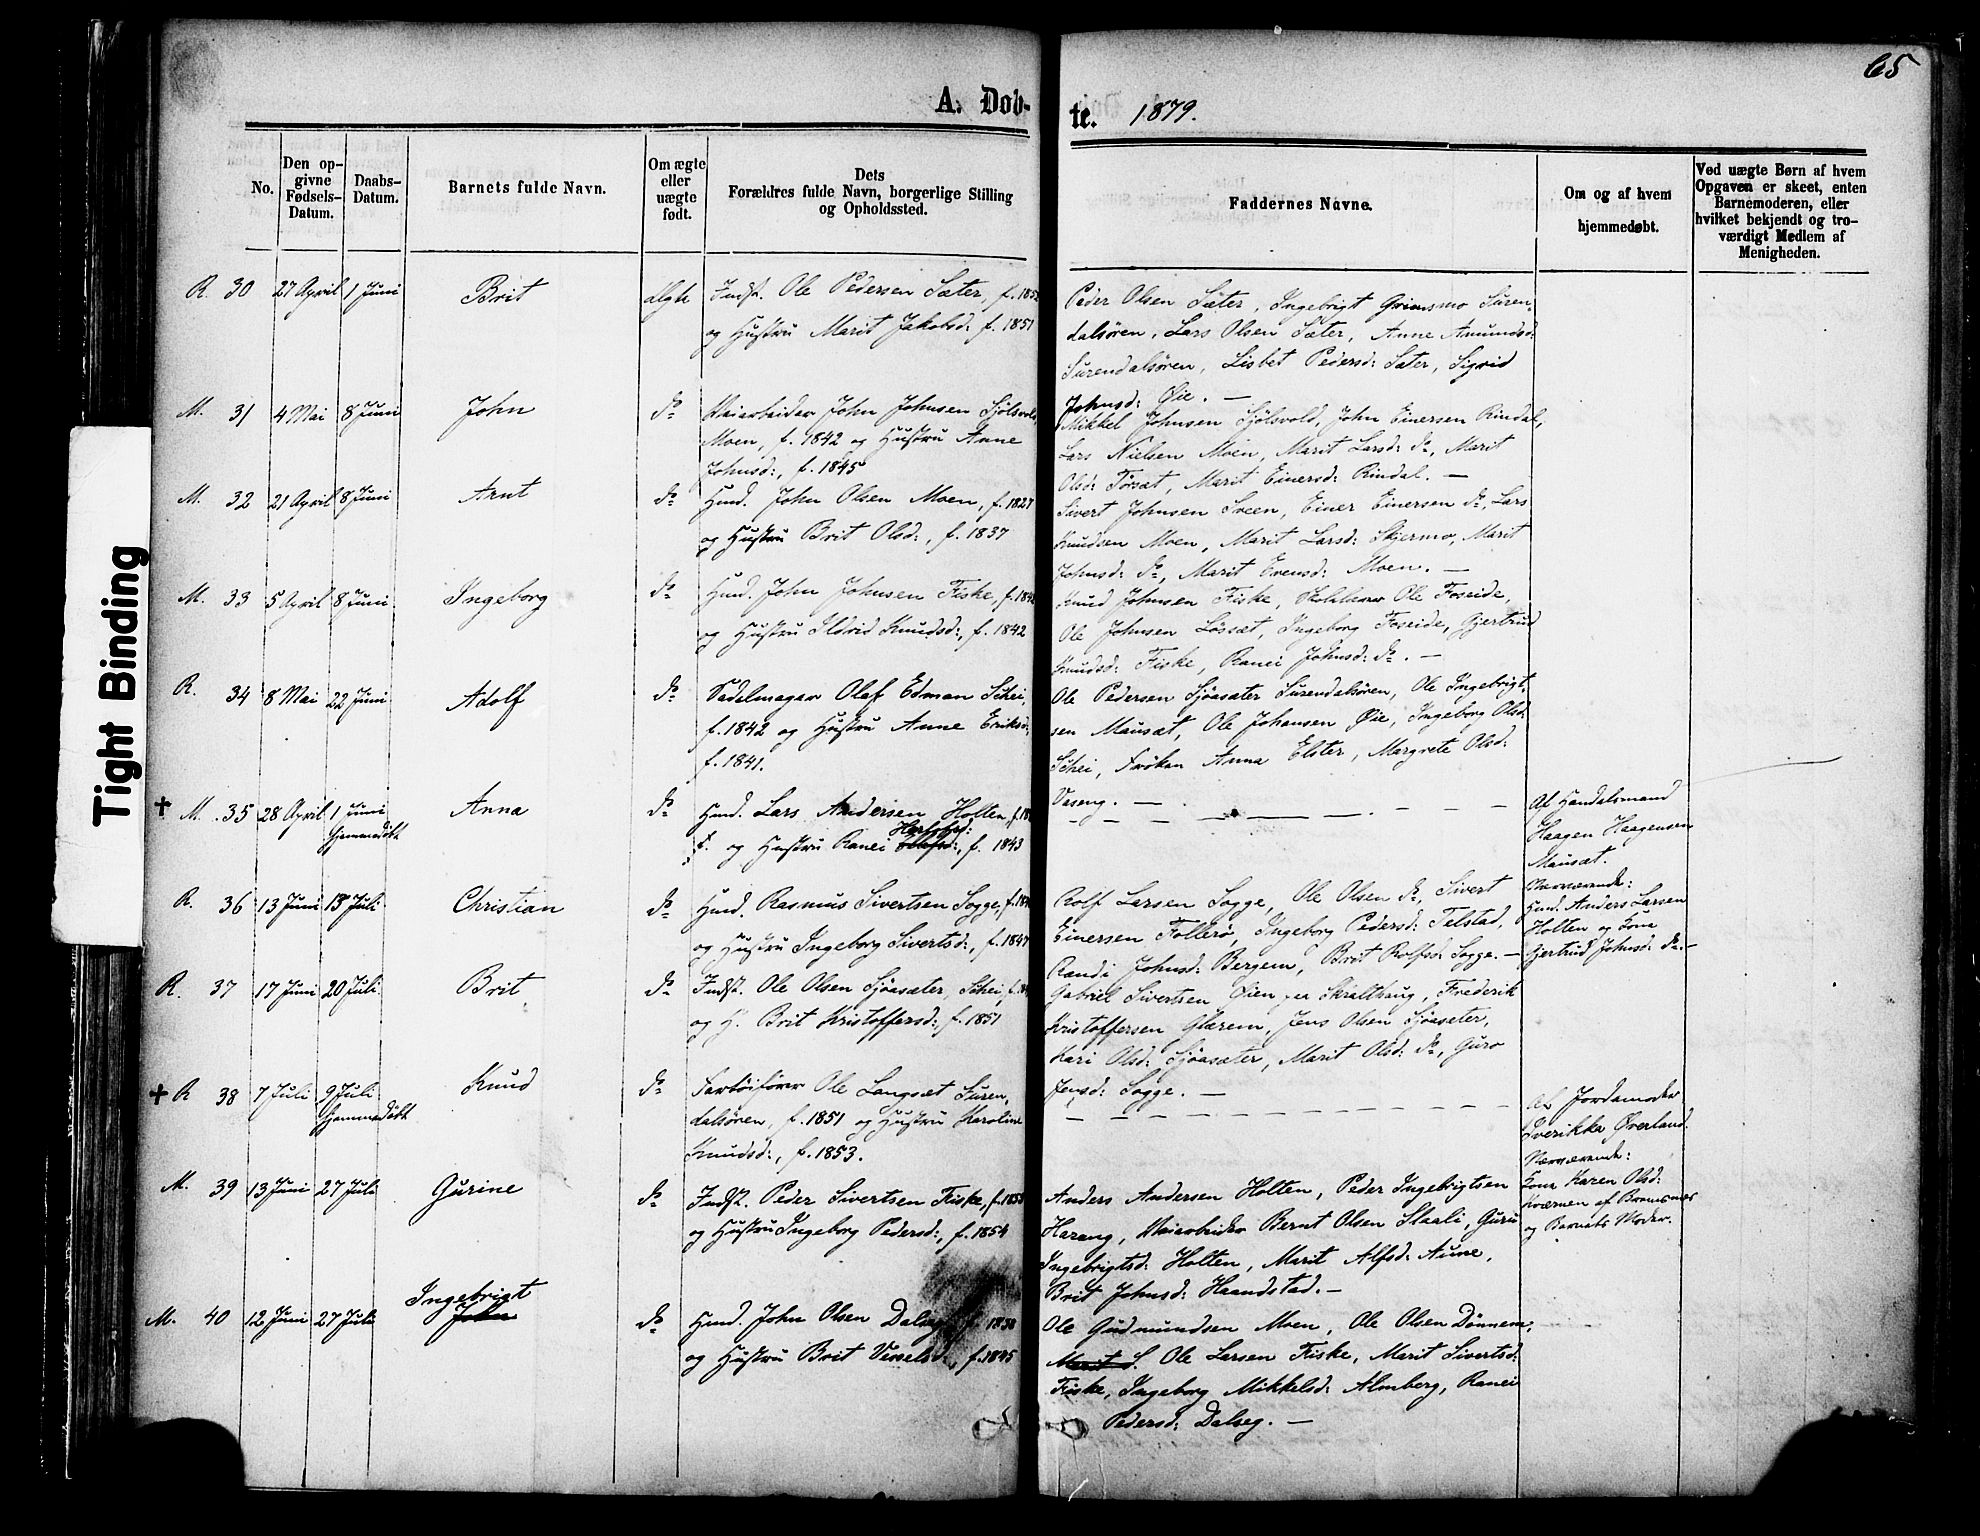 65
A. Døb-
te. 1879.
No.
Den op-
givne
Fødsels-
Datum.
Daabs-
Datum.
Barnets fulde Navn.
Om ægte
eller
uægte
født.
Dets
Forældres fulde Navn, borgerlige Stilling
og Opholdssted.
Faddernes Navne.
Om og af hvem
hjemmedøbt.
Ved uægte Børn af hvem
Opgaven er skeet, enten
Barnemoderen, eller
hvilket bekjendt og tro-
værdigt Medlem af
Menigheden.
R. 30 27 April 1 Juni Brit Ægte Indst. Ole Pedersen Sæter, f.
og Hustru Marit Jakobsd: f. 1851
Peder Olsen Sæter, Ingebrigt Grimsmo Suren-
dalsøren, Lars Olsen Sæter, Anne Amundsd:
Surendalsøren, Lisbet Pedersd: Sæter, Sigrid
Johnsd: Øie. —
M. 31 4 Mai 8 Juni John do Veiarbeider John Johnsen Sjølsvold
Moen, f. 1842 og Hustru Anne
Johnsd:, f. 1845
Mikkel Johnsen Sjølsvold, John Einersen Rindal,
Lars Nielsen Moen, Marit Larsd: do, Marit
Olsd: Torsæt, Marit Einersd: Rindal. —
M. 32 21 April 8 Juni Arnt do Gmd. John Olsen Moen, f. 1827
og Hustru Brit Olsd:, f. 1837
Sivert Johnsen Sveen, Einer Einersen do, Lars
Knudsen Moen, Marit Larsd: Skjermo, Marit
Johnsd: do, Marit Evensd: Moen. —
M. 33 5 April 8 Juni Ingeborg do Gmd. John Johnsen Fiske, f.
og Hustru Ildrid Knudsd:, f. 1842
Knud Johnsen Fiske, Skolelærer Ole Foseide,
Ole Johnsen Løssæt, Ingeborg Foseide, Gjertrud
Knudsd: Fiske, Ranei Johnsd: do. —
R. 34 8 Mai 22 Juni Adolf do Sadelmager Olaf Edman Schei,
f. 1842 og Hustru Anne Eriksd:
f. 1841.
Ole Pedersen Sjøasæter Surendalsøren, Ole Ingebrigt-
sen Mausæt, Ole Johansen Øie, Ingeborg Olsd:
Schei, Frøken Anna Elster, Margrete Olsd:
Vaseng. —
† M. 35 28 April 1 Juni Anna do Gmd. Lars Andersen Holten, f.
hjemmedøbt
og Hustru Ranei f. 1843
Af Handelsmand
Haagen Haagensen
Mausæt.
Nærværende:
Gmd. Anders Larsen
Holten og Kone
Gjertrud Johnsd: do. —
R. 36 13 Juni 13 Juli Christian do Gmd. Rasmus Sivertsen Sogge, f.
og Hustru Ingeborg Sivertsd:, f. 1847
Rolf Larsen Sogge, Ole Olsen do, Sivert
Einersen Follerø, Ingeborg Pedersd: Telstad,
Randi Johnsd: Bergem, Brit Rolfsd: Sogge. —
R. 37 17 Juni 20 Juli Brit do Indst. Ole Olsen Sjøasæter, Schei, f.
og H. Brit Kristoffersd:, f. 1851
Gabriel Sivertsen Øien paa Skralthaug, Frederik
Kristoffersen Glærem, Jens Olsen Sjøaseter,
Kari Olsd: Sjøasæter, Marit Olsd: do, Guro
Jensd: Sogge. —
† R 38 7 Juli 9 Juli Knud do Fartøifører Ole Langsæt Suren-
hjemmedøbt
dalsøren, f. 1851 og Hustru Karoline
Knudsd:, f. 1853.
Af Jordemoder
Øverland.
Nærværende:
Kone Karen Olsd:
Kværnen af Bremsnes
og Barnets Moder.
M. 39 13 Juni 27 Juli Gurine do Indst. Peder Sivertsen Fiske, f.
og Hustru Ingeborg Pedersd:, f. 1854
Anders Andersen Holten, Peder Ingebrigtsen
Harang, Veiarbeider Bernt Olsen Staali, Guru
Ingebrigtsd: Holten, Marit Alfsd: Aune,
Brit Johnsd: Haandstad. —
Ingebrigt
M. 40 12 Juni 27 Juli John do Gmd. John Olsen Dalseg, f. 1838
og Hustru Brit Vesselsd:, f. 1845
Ole Gudmundsen Moen, Ole Olsen Dønnem,
Marit S. Ole Larsen Fiske, Marit Sivertsd:
Fiske, Ingeborg Mikkelsd: Almberg, Ranei
Pedersd: Dalseg. —
Tight Binding